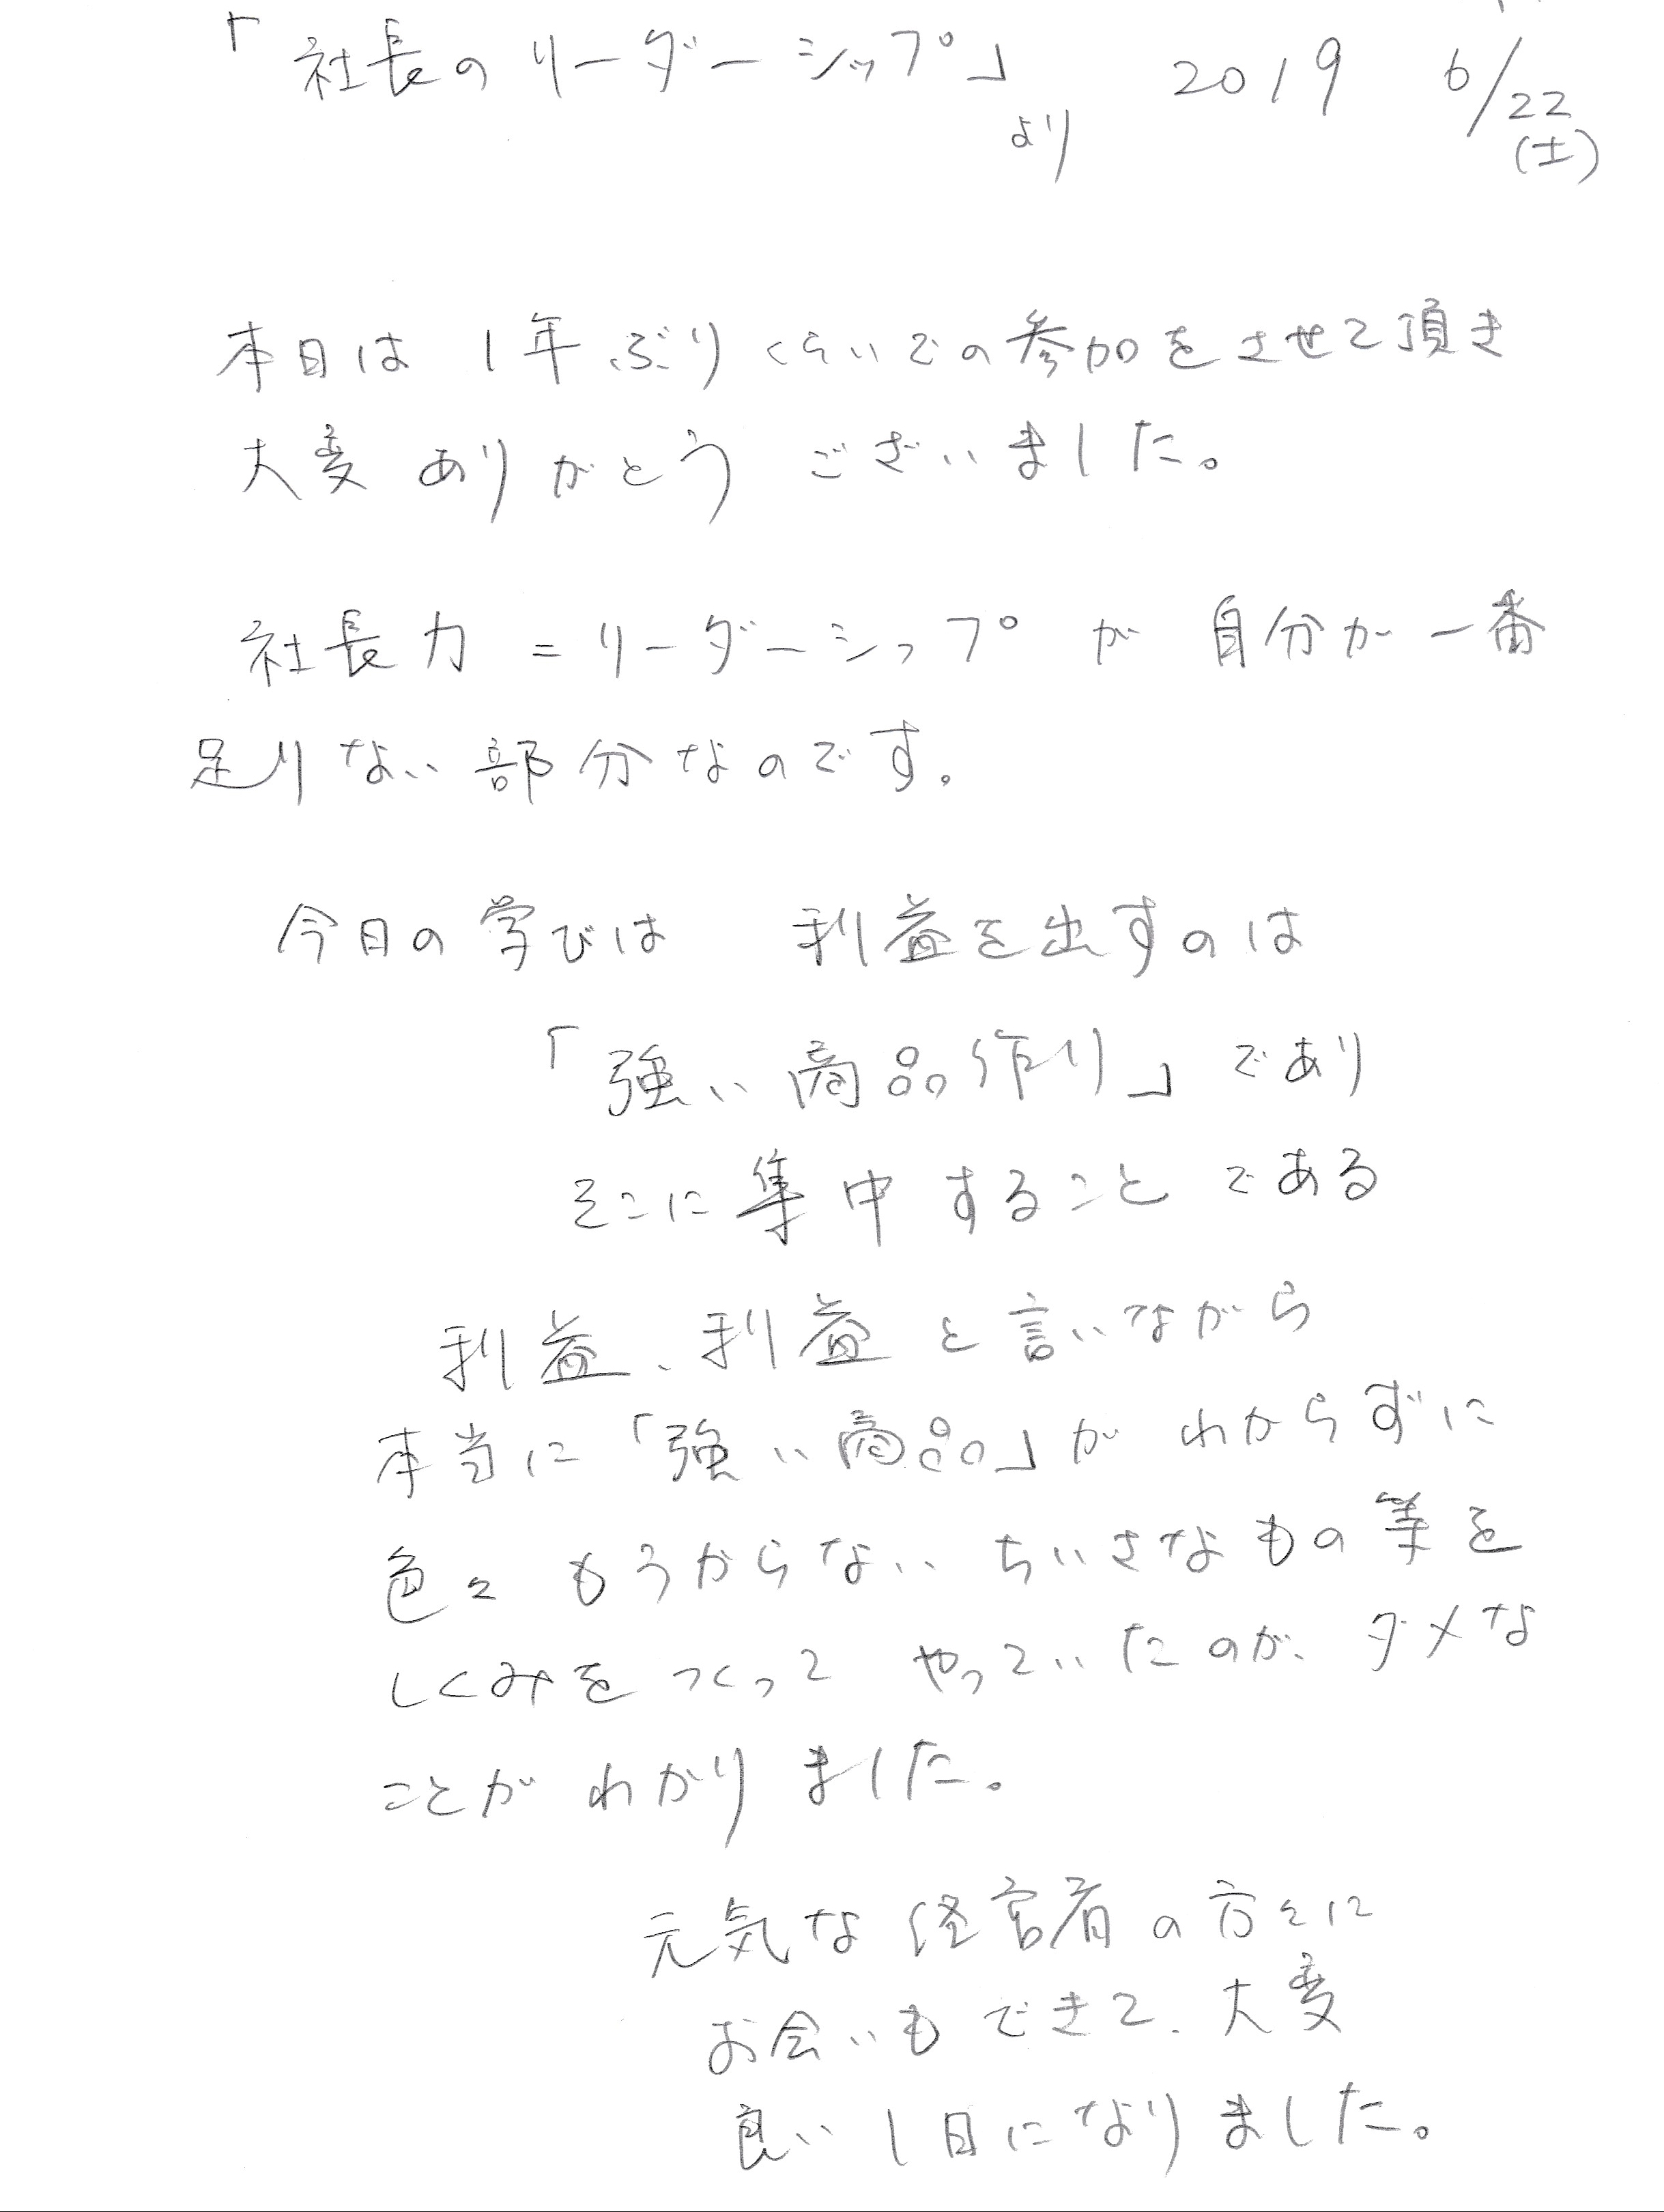 「社長のリーダーシップ」より 2019 6/22(土)
本日は1年ぶりくらいでの参加をさせて頂き
大変ありがとうございました。
社長力=リーダーシップが自分が一番
足りない部分なのです。
今日の学びは 利益を出すのは
「強い商品作り」であり
そこに集中することである
利益、利益と言いながら
本当に「強い商品」がわからずに
色々もうからないちいさなもの等を
しくみをつくってやっていたのが、ダメな
ことがわかりました。
元気な経営者の方々に
お会いもできて、大変
良い1日になりました。